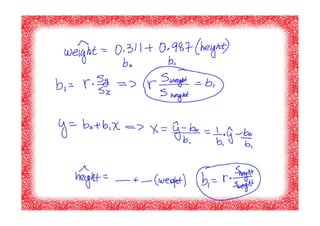 weight^ = 0.311 + 0.987 (height)
b₀ b₁
b₁ = r · Sy/Sx => r Sweight/Sheight = b₁
y = b₀ + b₁x => x = (ŷ - b₀)/b₁ = 1/b₁ · ŷ - b₀/b₁
height^ = __ + __ (weight) b₁ = r · Sheight/Sweight